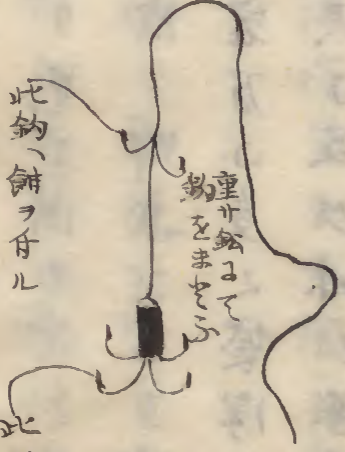 重サ鉛にて
鈎をまとふ
此鈎ヘ餌ヲ付ル
此